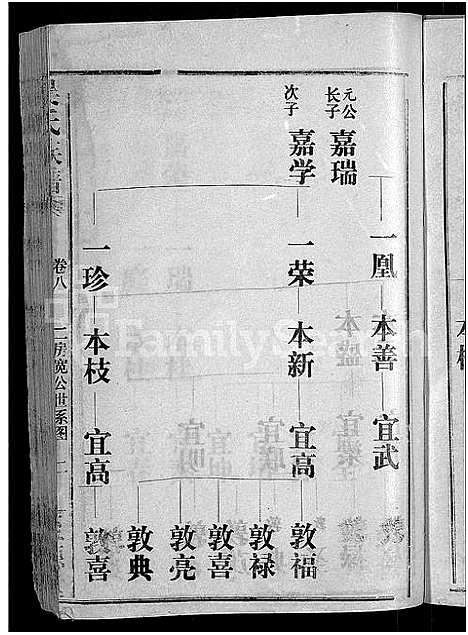 元公
长子
嘉瑞
一凰
本善
宜武
次子
嘉学
一荣
本新
宜高
敦福
敦禄
敦喜
敦亮
敦典
一珍
本枝
宜高
敦喜
卷八
二房宽公世系图
FamilySearch